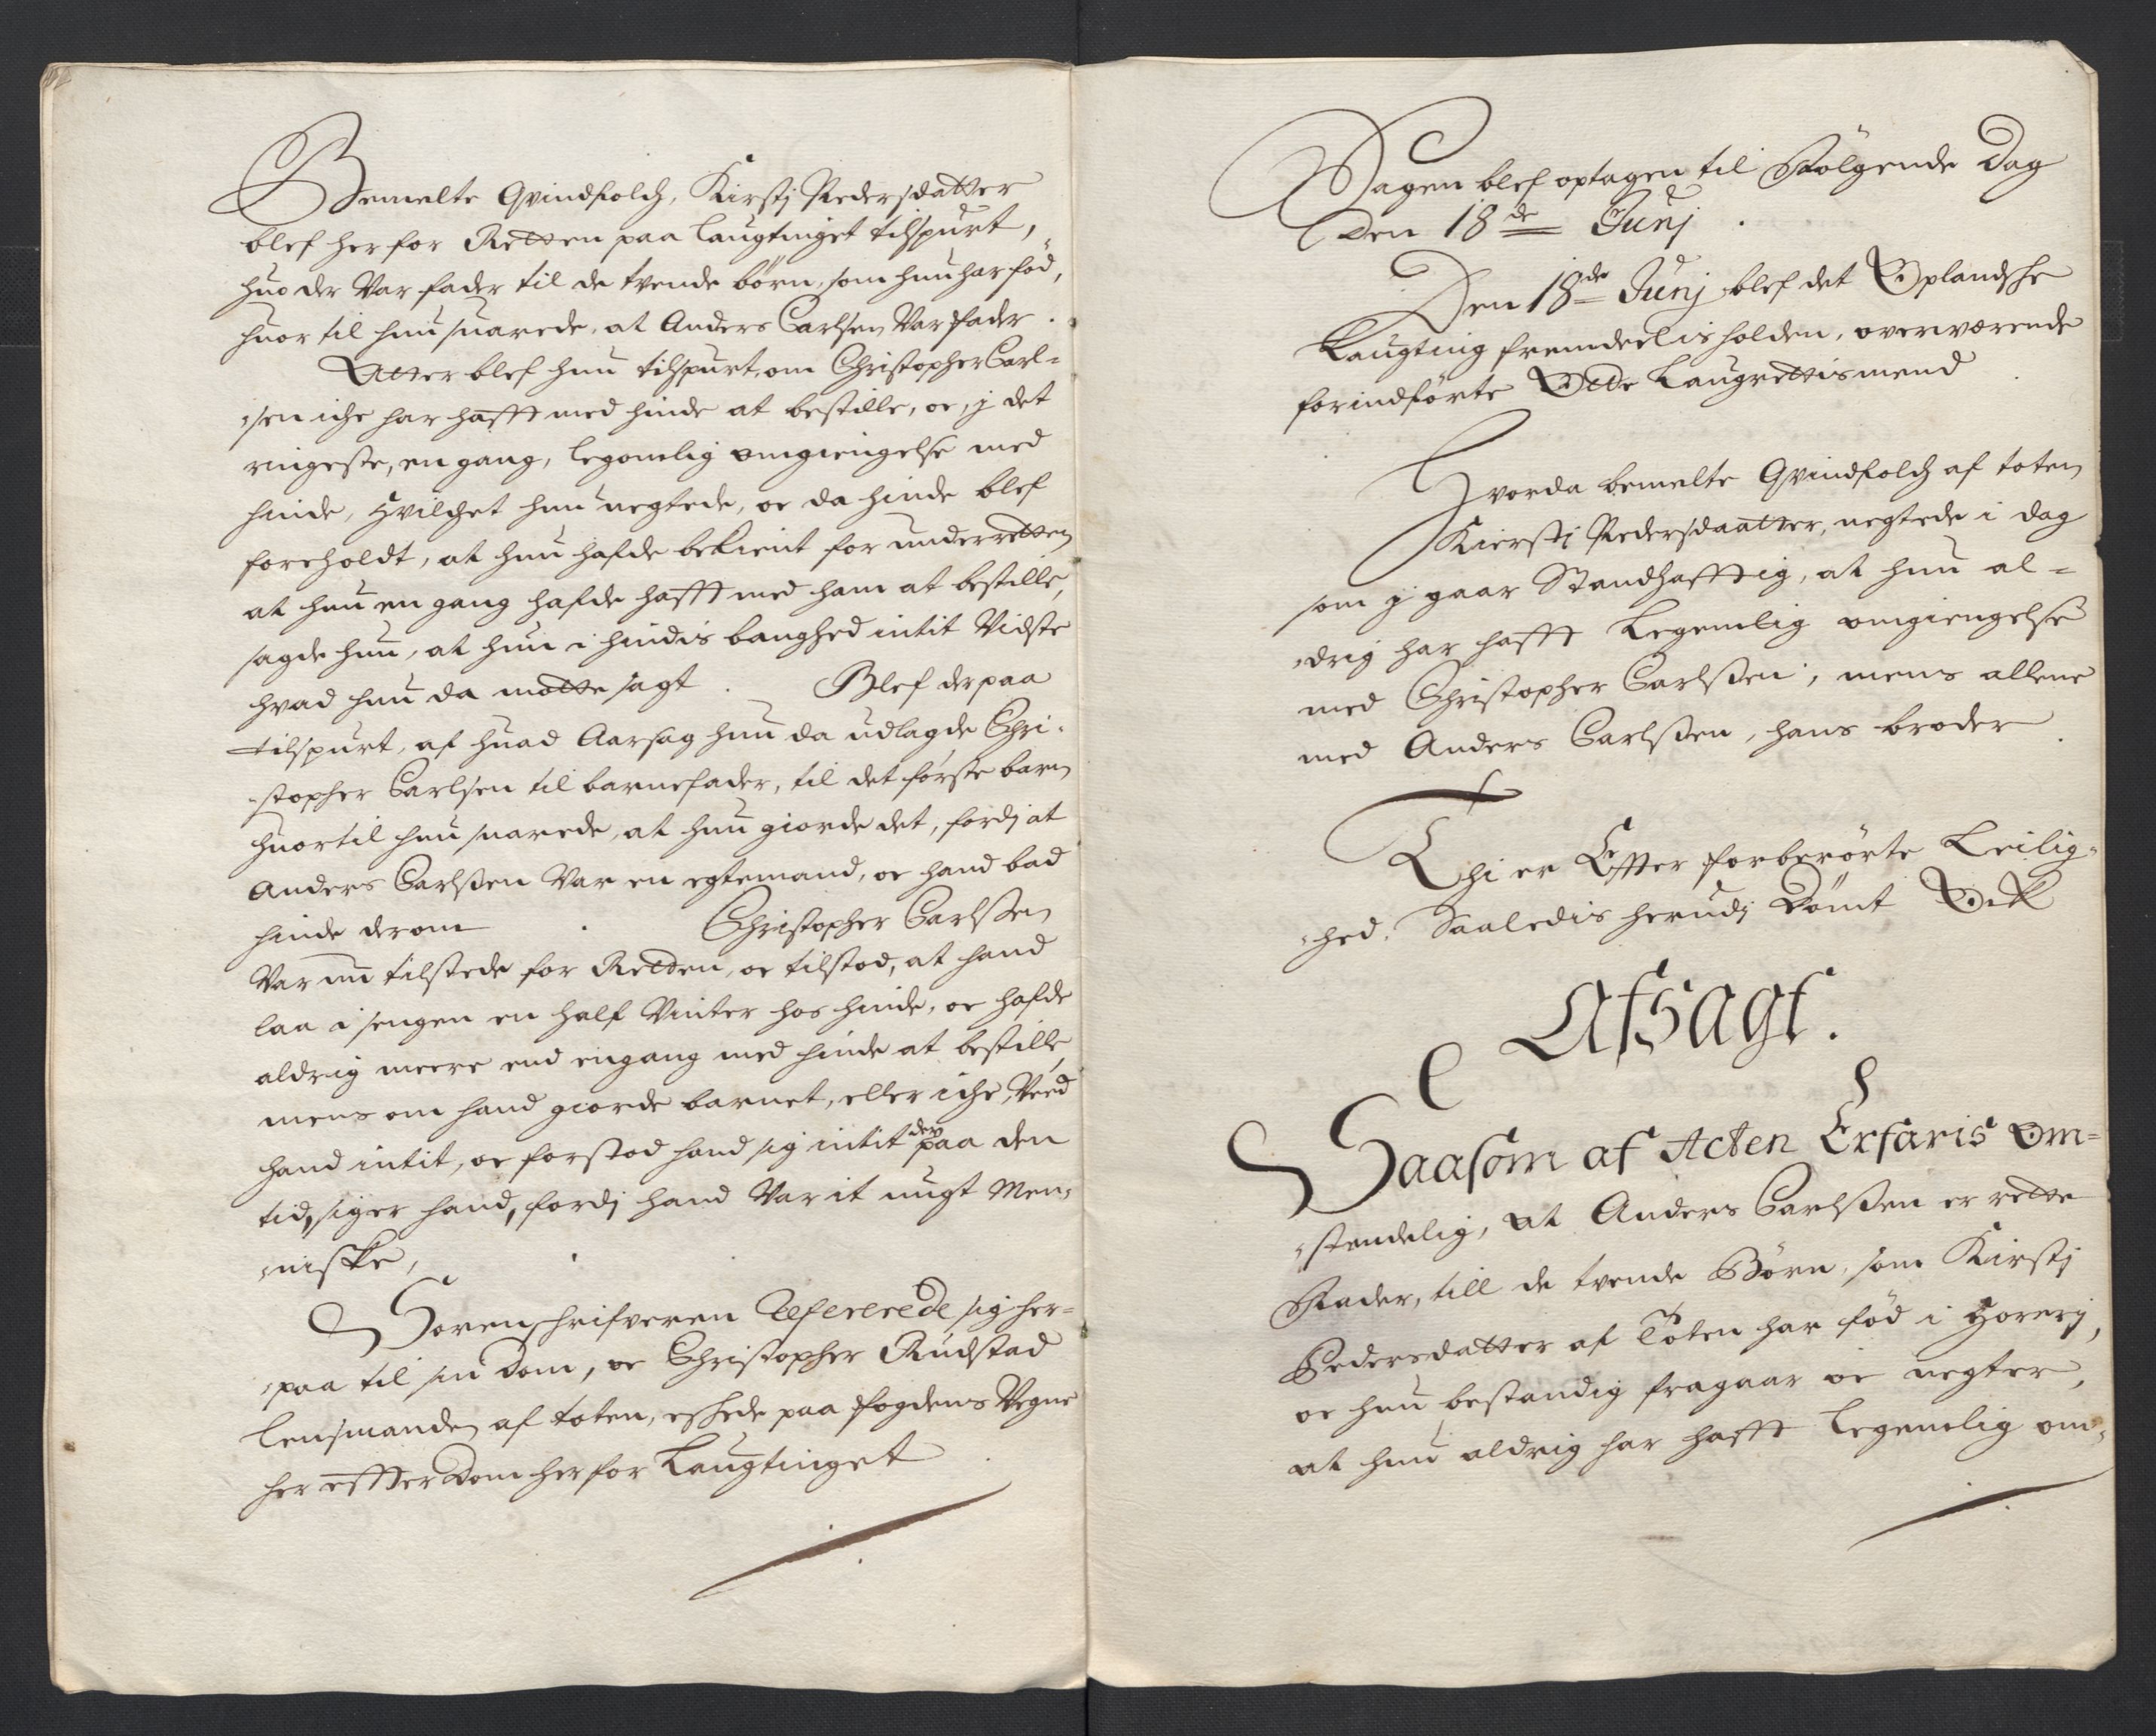 Bemelte Qvindfolch, Kirstj Pedersdatter
blef her for Retten paa laugtinget tilspurt,
huo der Var fader til de tvende börn, som hun har föd,
huor til hun suarede, at Anders Carlsen Var fader.
Atter blef hun tilspurt, om Christopher Carl=
sen iche har hafft med hinde at bestille, oc, j det
ringeste, en gang, legomlig omgiengelse med
hinde, Hvilchet hun negtede, oc da hinde blef
foreholdt, at hun hafde bekient for underretten
at hun en gang hafde hafft med ham at bestille,
sagde hun, at hun i hindis banghed intit Vidste
hvad hun da motte sagt. Blef der paa
tilspurt, af huad Aarsag hun da udlagde Chri=
stopher Carlsen til barnefader, til det förste barn
huortil hun suarede, at hun giorde det, fordj at
Anders Carlßen Var en egtemand, oc hand bad
hinde derom. Christopher Carlßen
Var nu tilstede for Retten, oc tilstod, at hand
laa i sengen en half Vinter hos hinde, oc hafde
aldrig meere end engang med hinde at bestille,
mens om hand giorde barnet, eller iche, Veed
hand intit, oc forstod hand sig intit der paa den
tid, siger hand, fordj hand Var it ungt Men=
niske,
Sorenschrifveren Refererede sig her=
paa til sin Dom, oc Christopher Rudstad
lensmanden af toten, eskede paa fogdens Vegne
her effter Dom her for Laugtinget
Sagen blef optagen til Fölgende Dag
Den 18de Junj.
Den 18de Junj blef det Oplandske
Laugting fremdeelis holden, overværende
forindförte Otte Laugrettismend
Hvorda bemelte Qvindfolch af toten
Kierstj Pedersdaatter, negtede i dag
som j gaar Standhafftig, at hun al=
drig har hafft Legemlig omgiengelse
med Christopher Carlßen, mens allene
med Anders Carlßen, hans broder.
Thi er Effter forberörte Leilig=
hed, Saaledis herudj Dömt Ock
Afsagt.
Saasom af Acten Erfaris Om=
stendelig, at Anders Carlßen er rette
Fader, till de tvende Börn, som Kirstj
Pedersdatter af Toten har föd i Horerj,
oc hun bestandig fragaar oc negter,
at hun aldrig har hafft legemlig om=